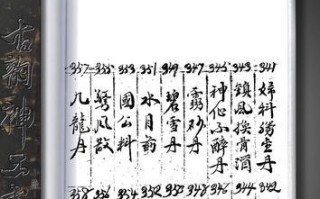 古韵神工
341
婦科丹
343
鎮風換骨酒
345
神仙不醉丹
347
靈砂丹
349
碧雪丹
351
水月葯
353
國公料
355
驚風散
357
九龍丹
342
344
346
348
350
352
354
356
358